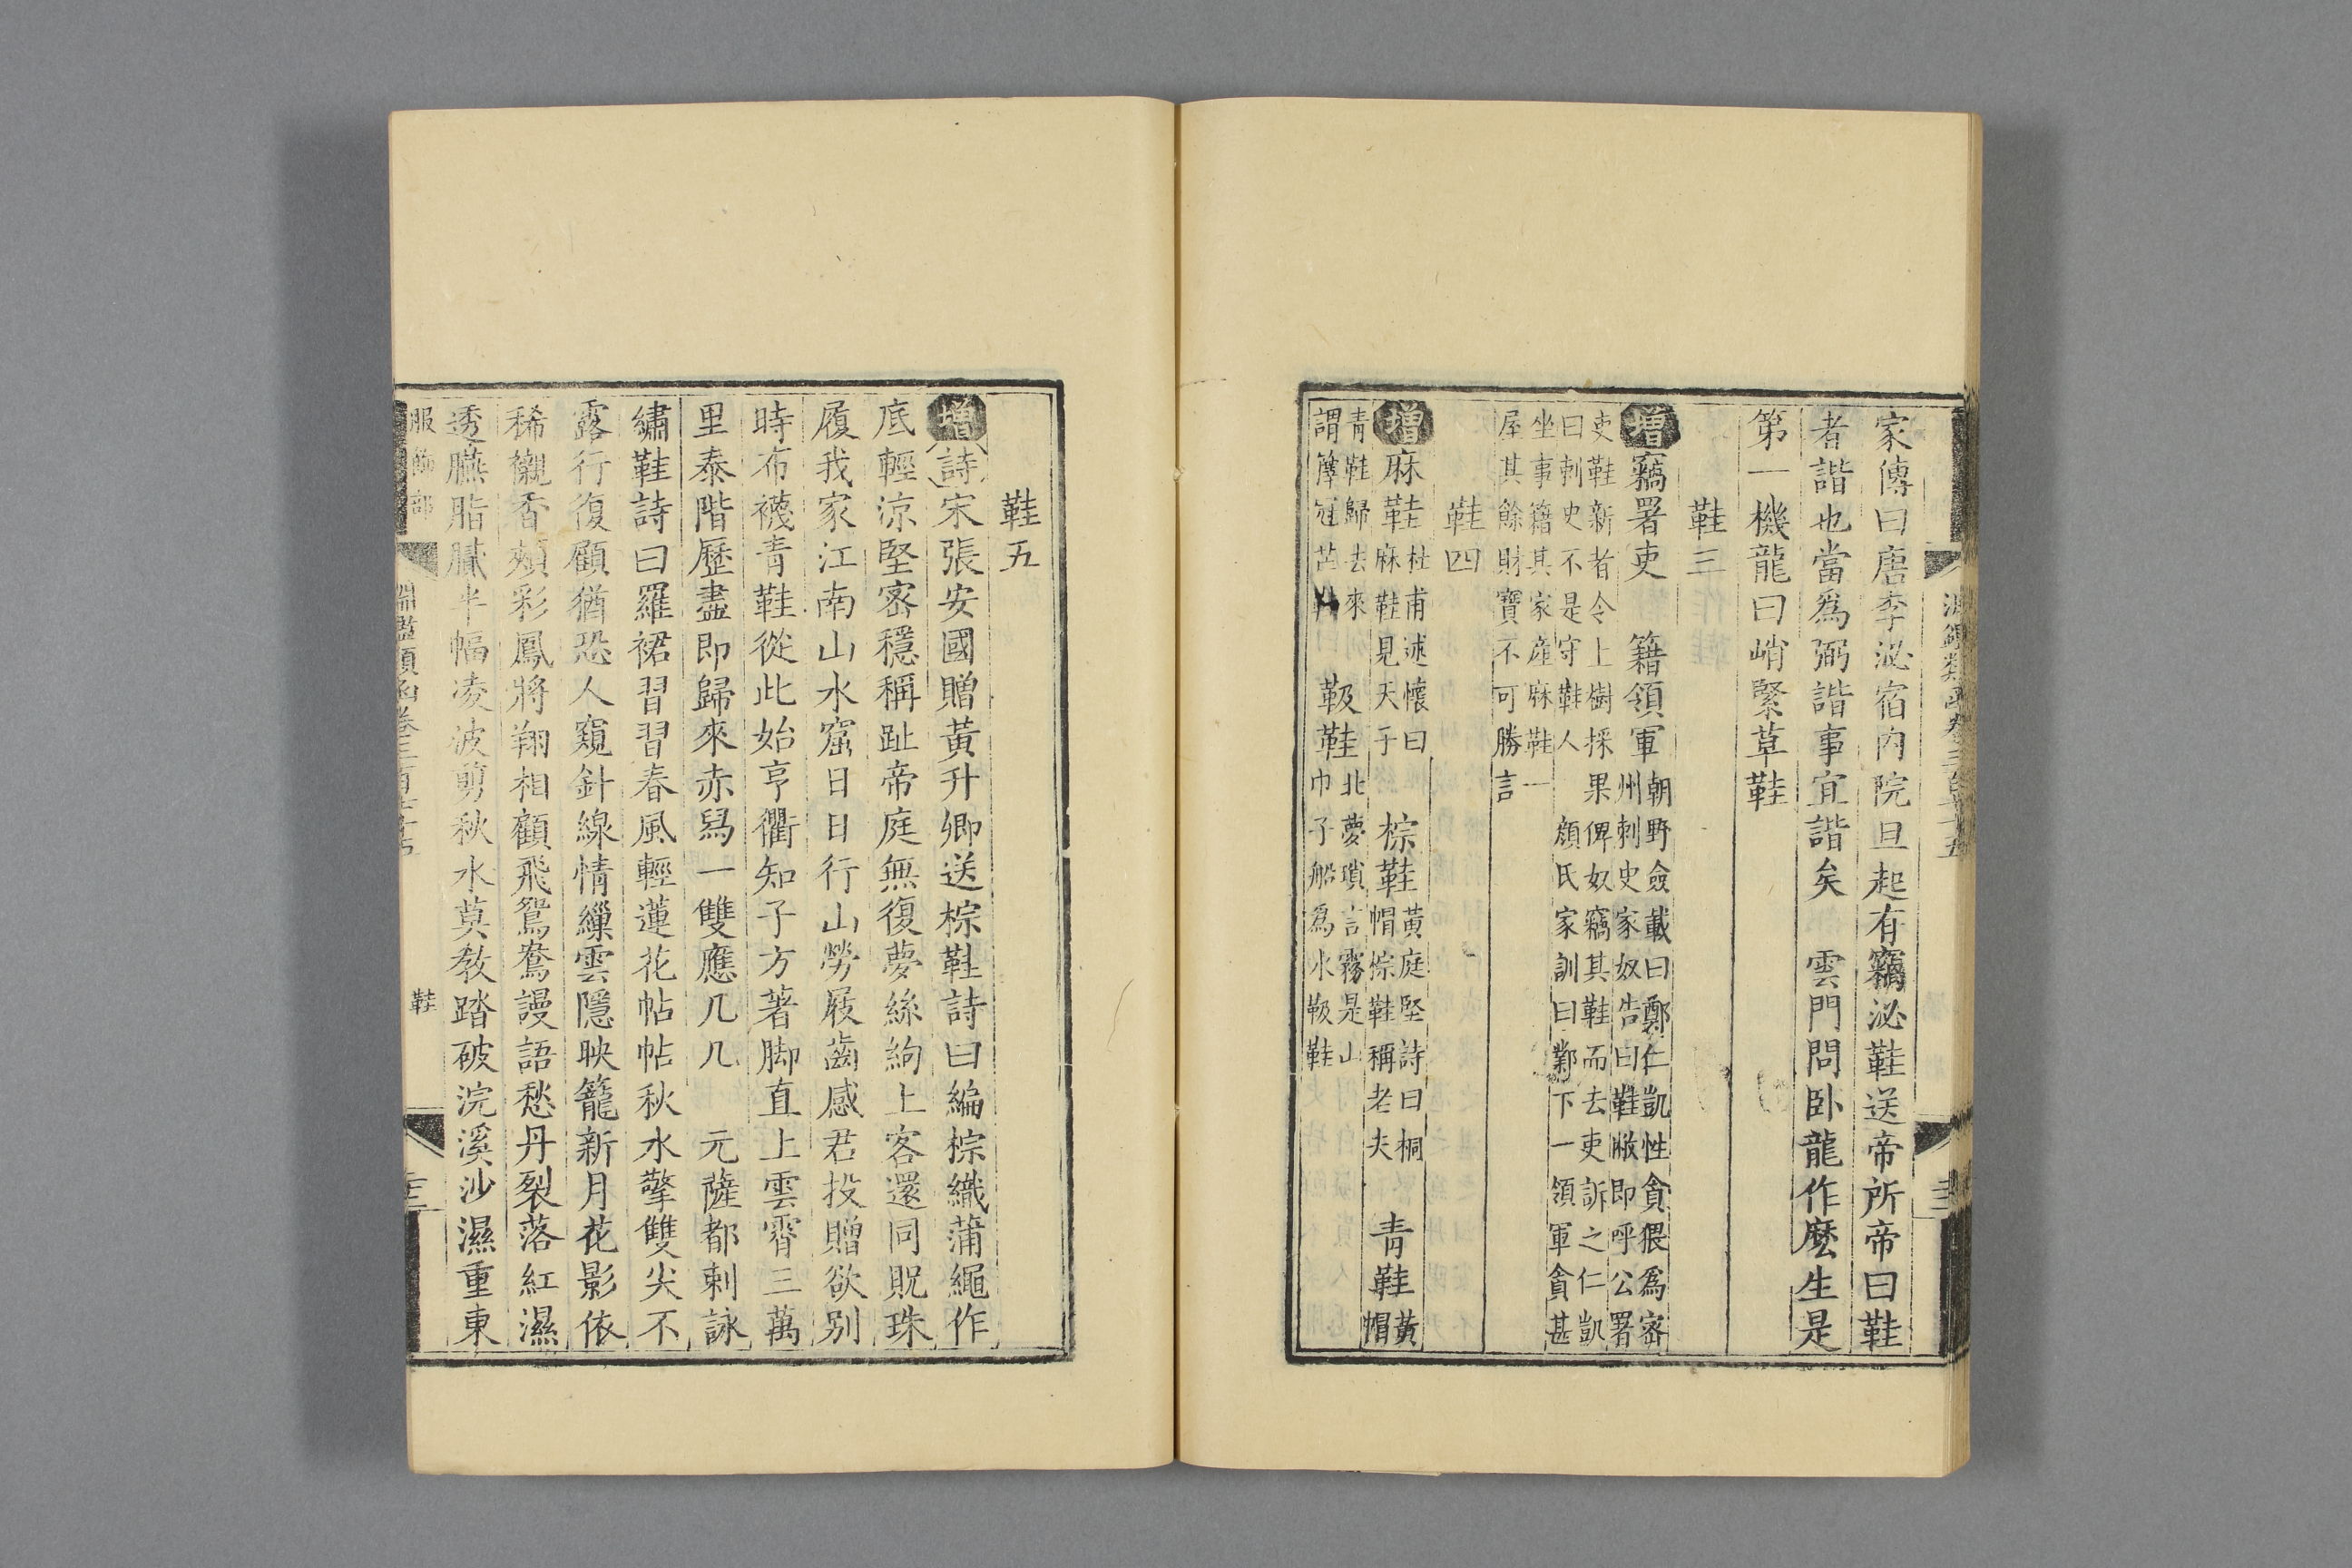 家傳曰唐李泌宿内院旦起有竊泌鞋送帝所帝曰鞋
者諧也當爲弼諧事宜諧矣　雲門問卧龍作麽生是
第一機龍曰峭緊草鞋
鞋三
增竊署吏　籍領軍
朝野僉載曰鄭仁凱性貪猥爲密
州刺史家奴告曰鞋敝即呼公署
吏鞋新者令上樹採果俾奴竊其鞋而去吏訴之仁凱
曰刺史不是守鞋人　顔氏家訓曰鄴下一領軍貪甚
坐事籍其家産麻鞋一
屋其餘財寶不可勝言
鞋四
增麻鞋
杜甫述懷曰
麻鞋見天子
棕鞋
黃庭堅詩曰桐
帽棕鞋稱老夫
青鞋
黃
帽
青鞋歸去來
謂籜冠芒
靸鞋
北夢瑣言霧是山
巾子船爲水靸鞋
鞋五
增詩宋張安國贈黃升卿送棕鞋詩曰編棕織蒲繩作
底輕涼堅密穩稱趾帝庭無復夢絲絇上客還同貺珠
履我家江南山水窟日日行山勞屐齒感君投贈欲别
時布襪青鞋從此始亨衢知子方著脚直上雲霄三萬
里泰階歷盡即歸來赤舄一雙應几几　元薩都剌詠
繡鞋詩曰羅裙習習春風輕蓮花帖帖秋水擎雙尖不
露行復顧猶恐人窺針線情繅雲隱映籠新月花影依
稀襯香頰彩鳳將翔相顧飛鴛鴦謾語愁丹裂落紅濕
透臙脂膩半幅凌波剪秋水莫教踏破浣溪沙濕重東
服飾部
淵鑑類函卷三百七十五
鞋